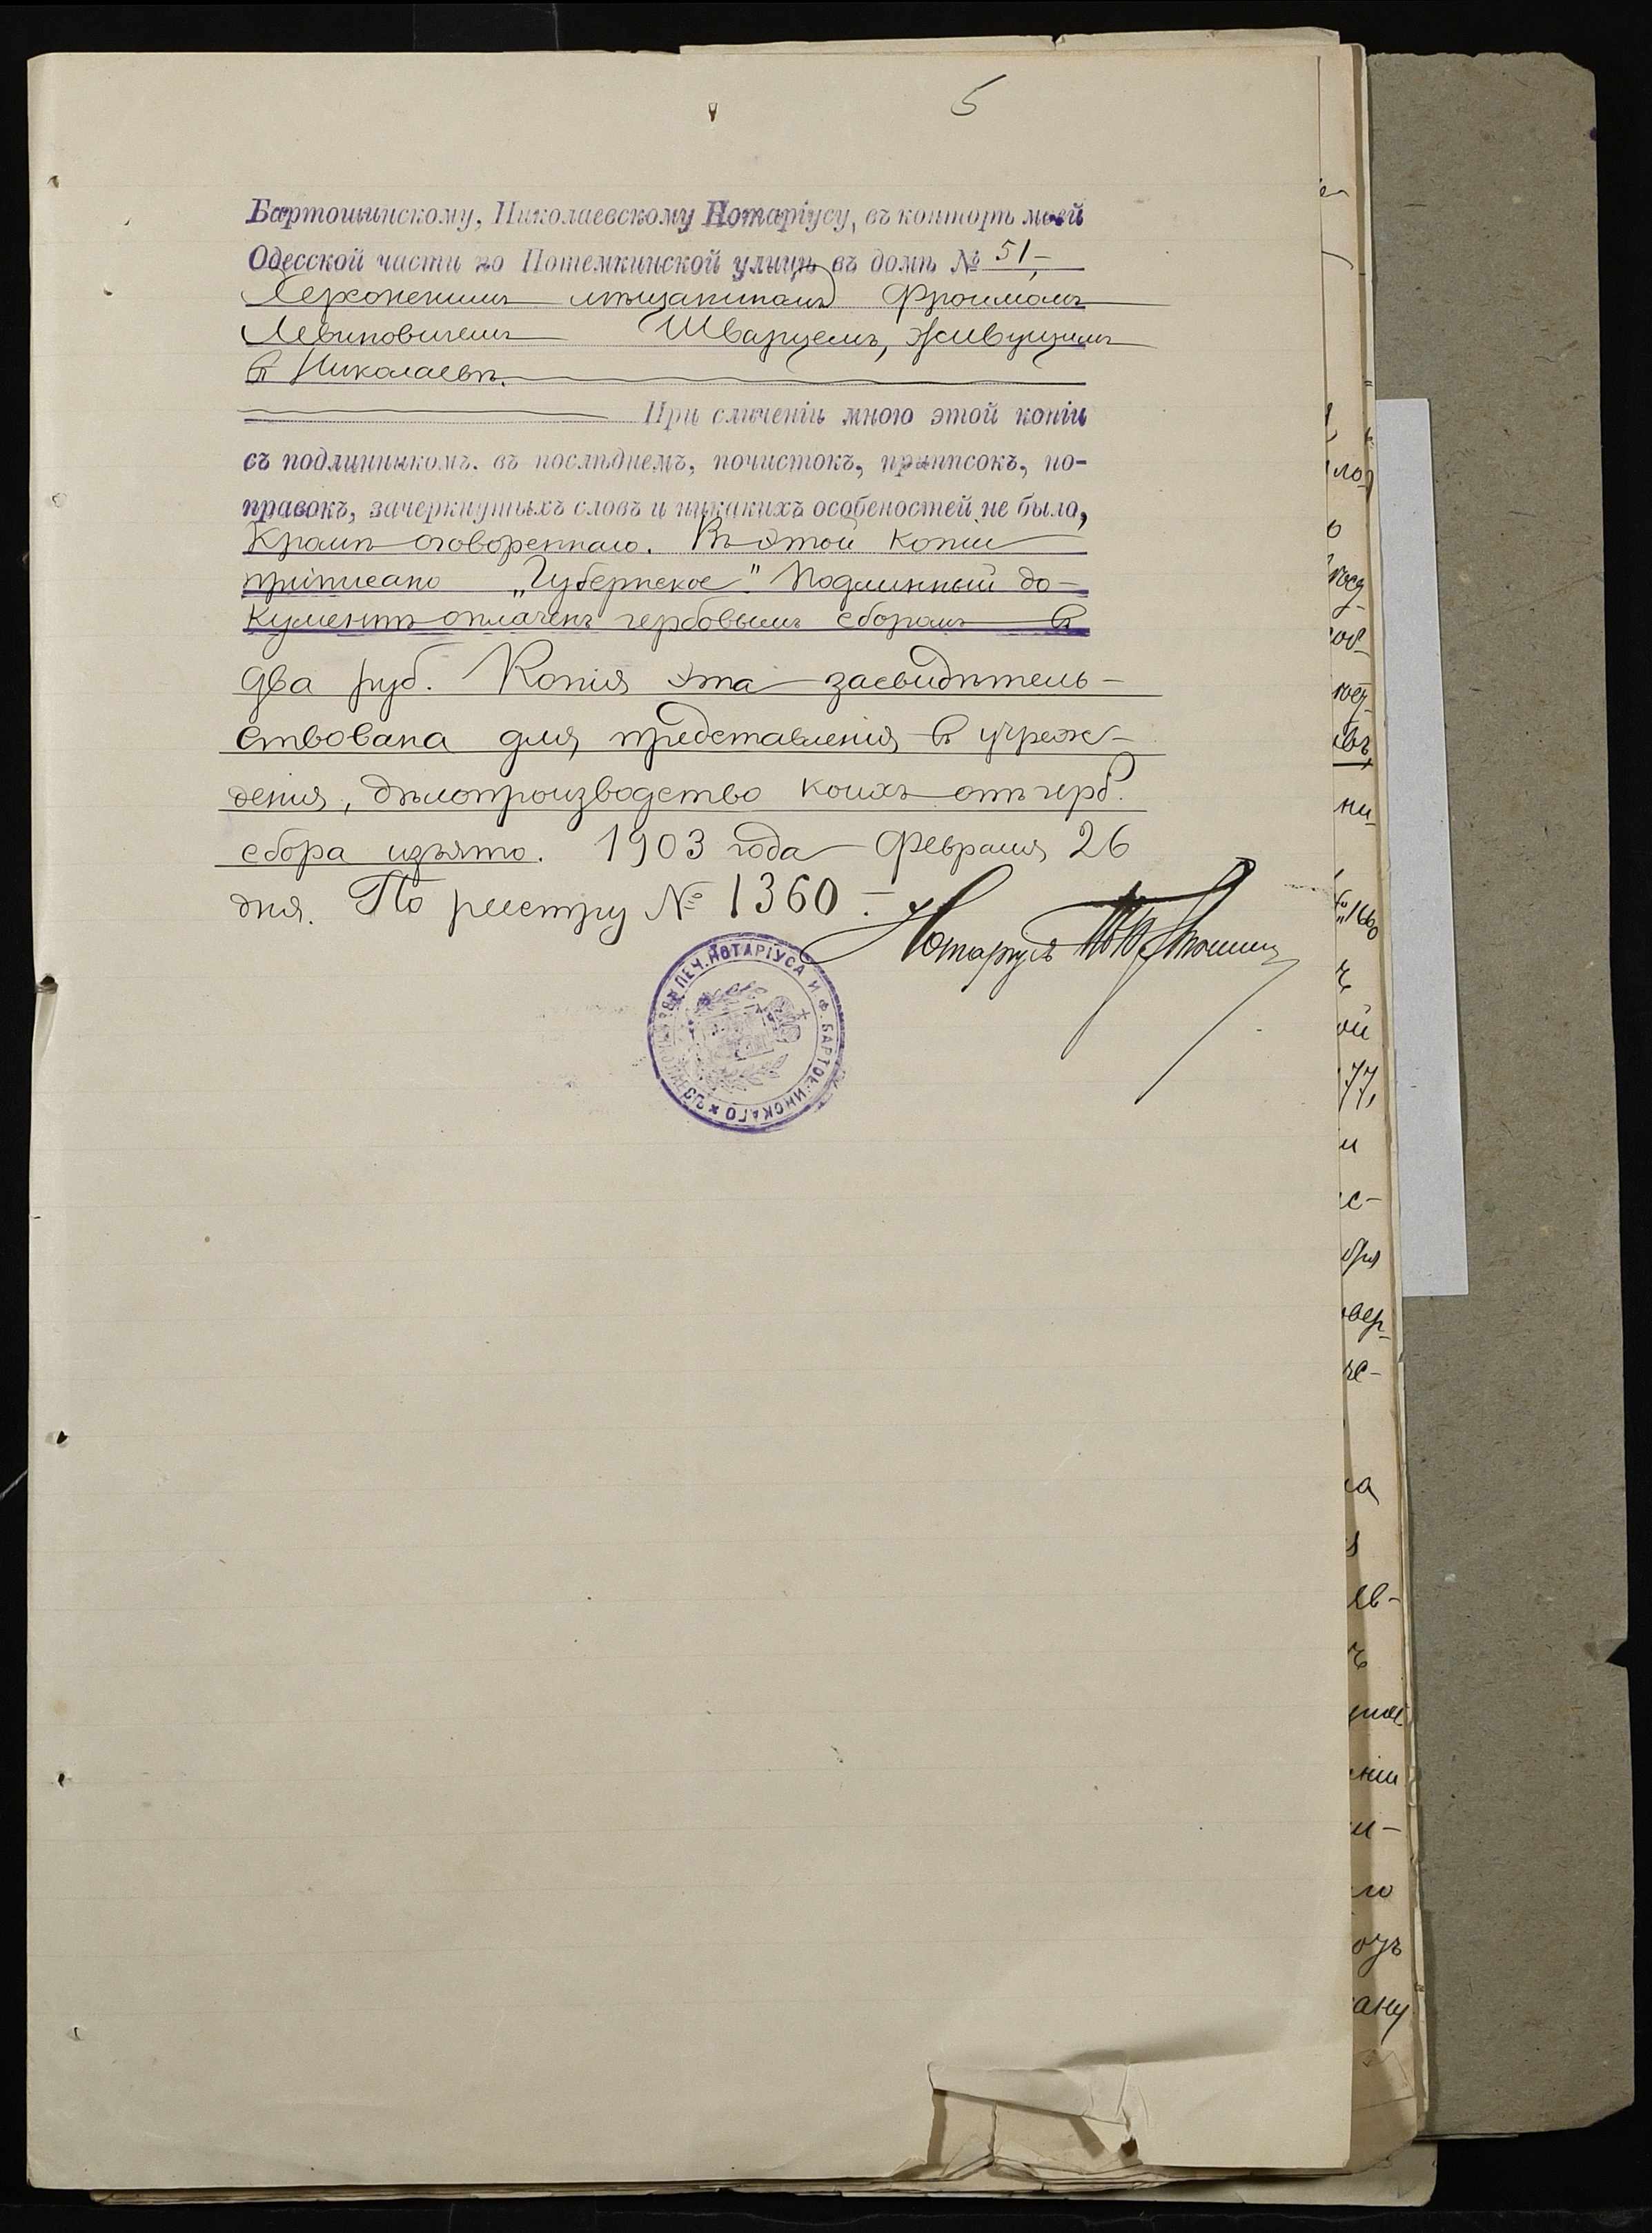 5
Бартошинскому, Николаевскому Нотаріусу, въ конторѣ моей
Одесской части по Потемкинской улицѣ въ домѣ № 51,
Херсонскимъ мѣщаниномъ Фроимомъ
Левиковичемъ Шварцемъ, живущимъ
въ Николаевѣ.
При сличеніи мною этой копіи
съ подлинникомъ, въ послѣднемъ, почистокъ, приписокъ, по-
правокъ, зачеркнутыхъ словъ и никакихъ особеностей не было,
кромѣ оговореннаго. Въ этой копіи
приписано „Губернское". Подлинный до-
кументъ оплаченъ гербовымъ сборомъ въ
два руб. Копія эта засвидѣтель-
ствована для представленія въ учреж-
денія, дѣлопроизводство коихъ отъ герб.
сбора изъято. 1903 года Февраля 26
дня. По реестру № 1360.
Нотаріусъ
ПЕЧ. НОТАРІУСА И. Ф. БАРТОШИНСКАГО